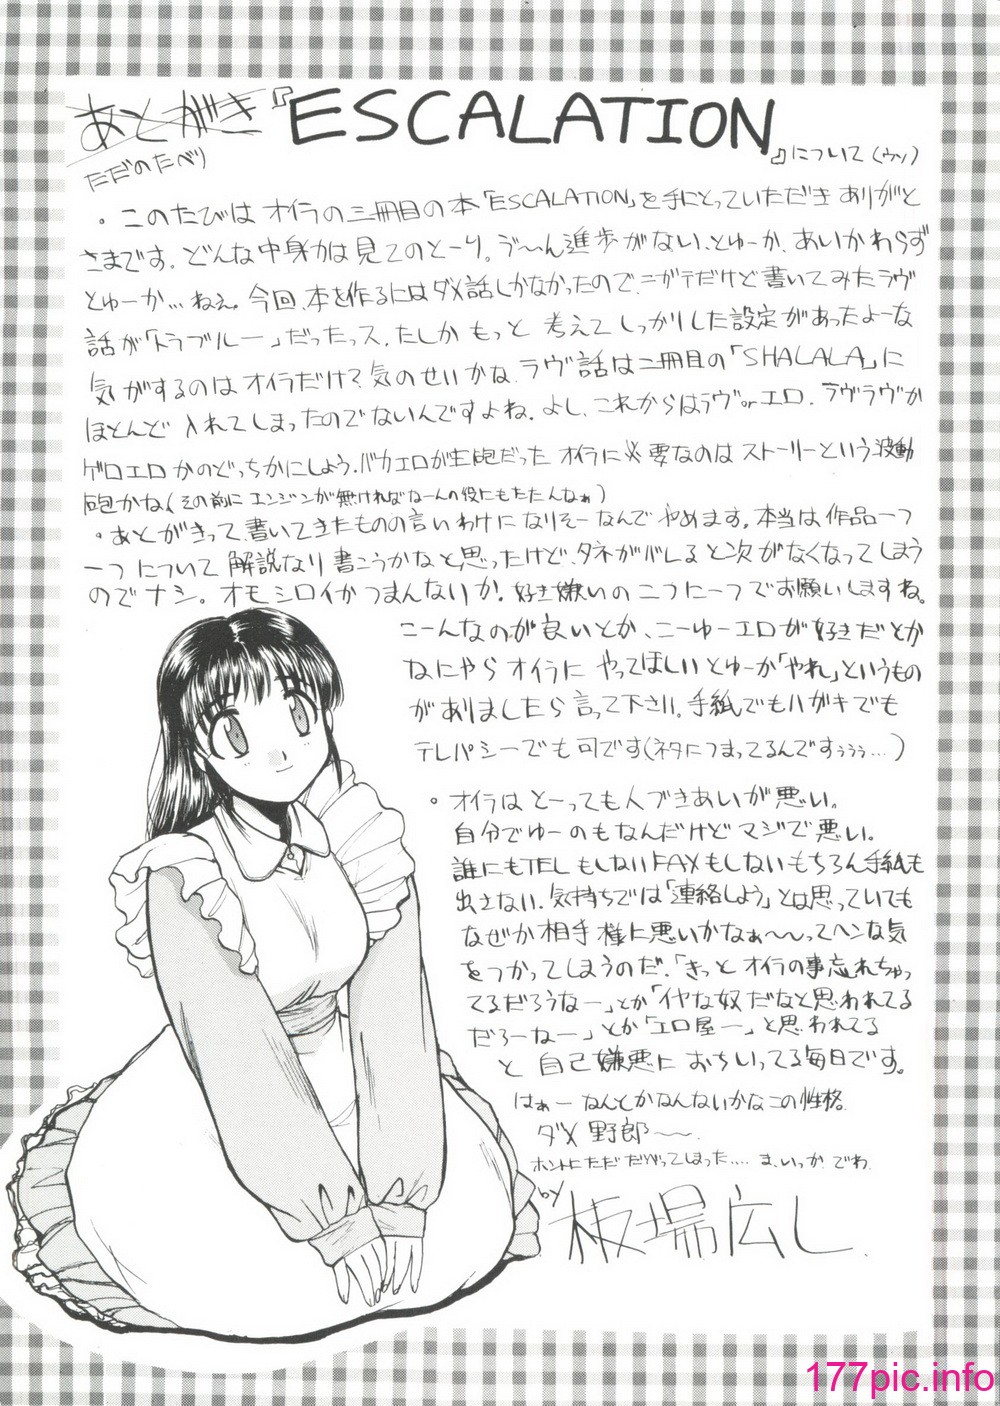 あとがき『ESCALATION』について(ウソ)
ただのだべり
・このたびはオイラの三冊目の本「ESCALATION」を手にとっていただきありがと
さまです。どんな中身かは見てのとーり。う〜ん進歩がない、とゆーか、あいかわらず
とゆーか…ねぇ。今回、本を作るにはダメ話しかなかったので、ニガテだけど書いてみたラヴ
話が「トラブルー」だったっス。たしかもっと考えてしっかりした設定があったよーな
気がするのはオイラだけ?気のせいかな。ラヴ話は二冊目の「SHALALA」に
ほとんど入れてしまったのでないんですよね。よし、これからはラヴorエロ。ラヴラヴか
ゲロエロかのどっちかにしよう。バカエロが主砲だったオイラに必要なのはストーリーという波動
砲かな(その前にエンジンが無ければなーんの役にもたたんなぁ)
・あとがきって、書いてきたものの言いわけになりそーなんでやめます。本当は作品一つ
一つについて解説なり書こうかなと思ったけど、タネがバレると次がなくなってしまう
のでナシ。オモシロイかつまんないか!好き嫌いの二つに一つでお願いしますね。
こーんなのが良いとか、こーゆーエロが好きだとか
なにやらオイラにやってほしいとゆーか「やれ」というもの
がありましたら言って下さい。手紙でもハガキでも
テレパシーでも可です(ネタにつまってるんですぅぅぅ…)
・オイラはとーっても人づきあいが悪い。
自分でゆーのもなんだけどマジで悪い。
誰にもTELもしないFAXもしないもちろん手紙も
出さない。気持ちでは「連絡しよう」とは思っていても
なぜか相手様に悪いかなぁ〜〜ってヘンな気
をつかってしまうのだ。「きっとオイラの事忘れちゃっ
てるだろうなー」とか「イヤな奴だなと思われてる
だろーなー」とか「エロ屋ー」と思われてる
と自己嫌悪におちいってる毎日です。
はぁーなんとかなんないかなこの性格
ダメ野郎〜〜
ホントにただだべってしまった…. ま、いっか でわ
by 板場広し
177pic.info